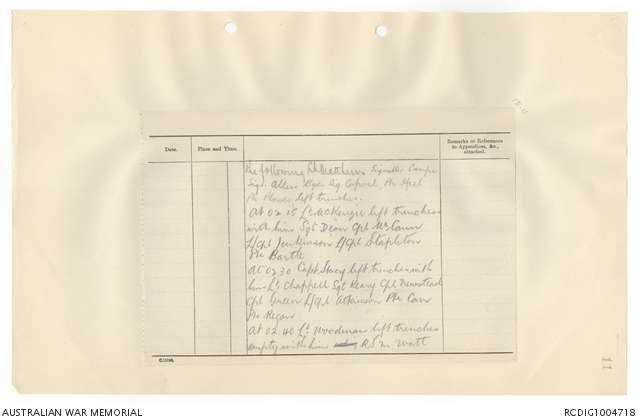 Date.
Place and Time.
Remarks or References
to Appendices, &c.,
attached.
the following Lt Matthews Signaller
Sigr. Allen
Pte left trenches.
At 02.15 Lt McKenzie left trenches
with him Sgt Dixon Cpl McCann
L/Cpl Jenkinson L/Cpl Stapleton
Pte Bartle
At 02.30 Capt Stacy left trenches with
him Lt Chappell Sgt Keary Cpl
Cpl Green L/Cpl Atkinson Pte Carr
Pte Regan
At 02.40 Lt Woodman left trenches
empty with him R.S.M. Watt
AUSTRALIAN WAR MEMORIAL
RCDIG1004718